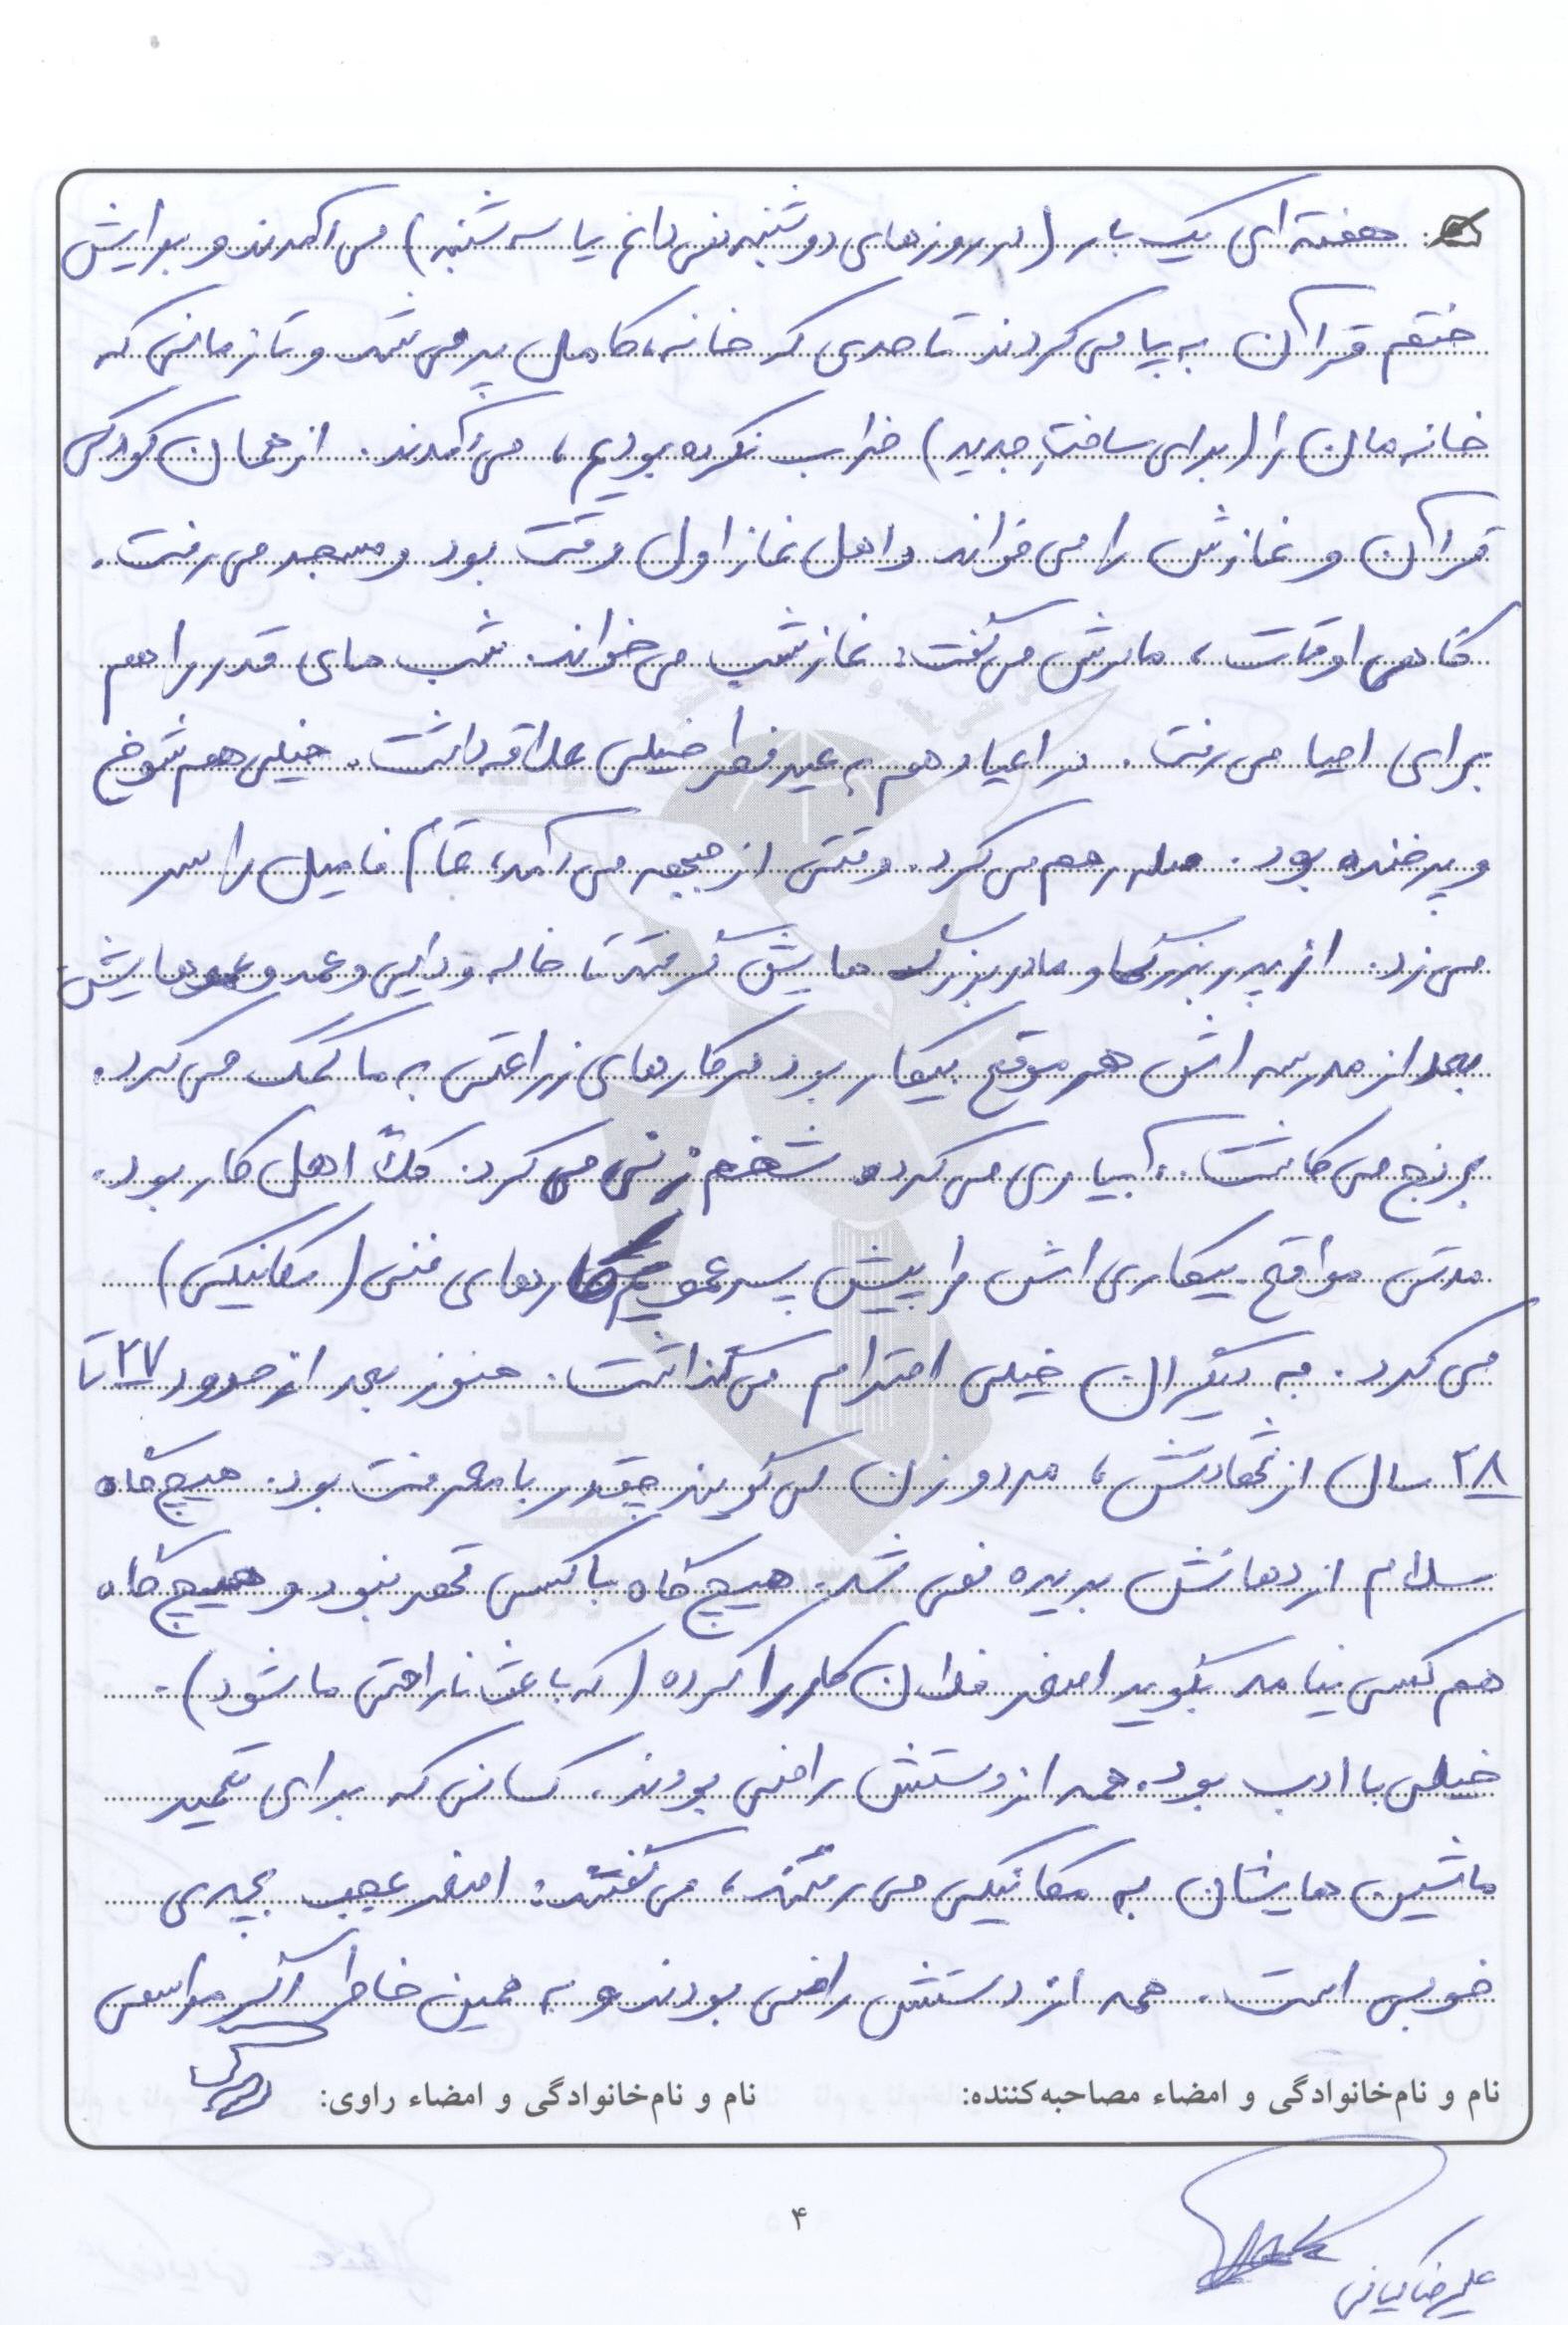 هفته‌ای یک بار (در روزهای دوشنبه نمی‌دانم یا سه‌شنبه) می‌آمدند و برایش
ختم قرآن به پا می‌کردند تا حدی که خانه، کامل پر می‌شد و تا زمانی که
خانه‌مان را (برای ساختِ جدید) خراب نکرده بودیم، می‌آمدند. از همان کودکی
قرآن و نمازش را می‌خواند و اهل نماز اول وقت بود و مسجد می‌رفت.
گاهی اوقات، مادرش می‌گفت: نماز شب می‌خواند. شب‌های قدر را هم
برای احیا می‌رفت. در اعیاد هم به عید فطر خیلی علاقه داشت. خیلی هم شوخ
و پرخنده بود. صله رحم می‌کرد. وقتی از جبهه می‌آمد، تمام فامیل را سر
می‌زد. از پدربزرگ و مادربزرگ‌هایش گرفته تا خاله و دایی و عمه و عموهایش
بعد از مدرسه‌اش هر موقع بیکار بود در کارهای زراعتی به ما کمک می‌کرد.
برنج می‌کاشت، آبیاری می‌کرد، شخم‌زنی می‌کرد. کلاً اهل کار بود.
مدتی مواقع بیکاری‌اش را پیش پسرعمویم کارهای فنی (مکانیکی)
می‌کرد. به دیگران خیلی احترام می‌گذاشت. هنوز بعد از حدود ۲۷ تا
۲۸ سال از شهادتش، مرد و زن می‌گویند چقدر بامعرفت بود. هیچ‌گاه
سلام از دهانش بریده نمی‌شد. هیچ‌گاه با کسی قهر نبود و هیچ‌گاه
هم کسی نیامد بگوید اصغر فلان کار را کرده (که باعث ناراحتی ما شود).
خیلی باادب بود. همه از دستش راضی بودند. کسانی که برای تعمیر
ماشین‌هایشان به مکانیکی می‌رفتند، می‌گفتند: اصغر عجب بچه‌ی
خوبی است. همه از دستش راضی بودند و به همین خاطر اگر مراسمی
نام و نام‌خانوادگی و امضاء مصاحبه‌کننده: نام و نام‌خانوادگی و امضاء راوی:
۴
علیرضا کیانی